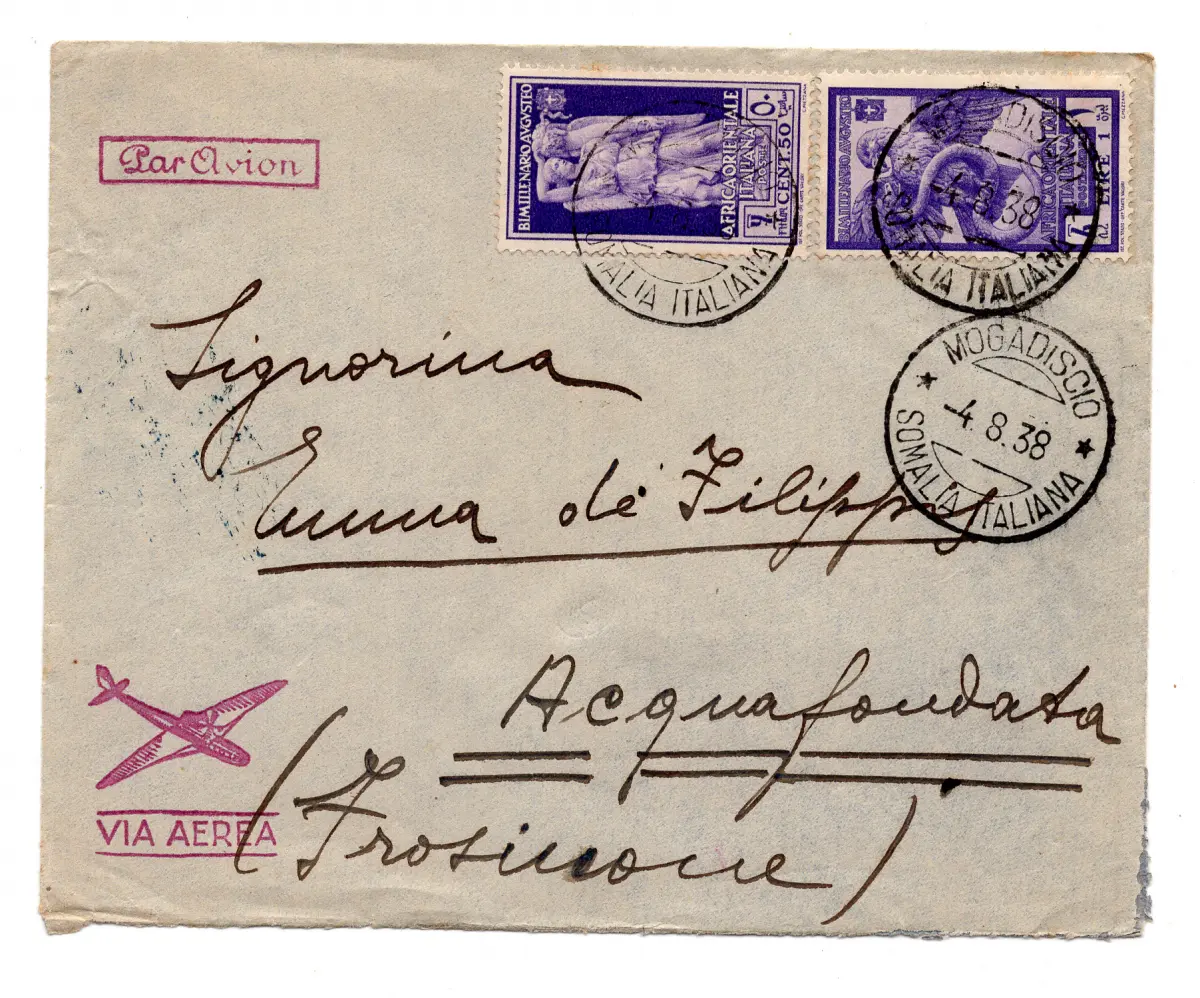 Par Avion
BIMILLENARIO AVGVSTEO
AFRICA ORIENTALE
ITALIANA
POSTE
CENT 50
BIMILLENARIO AVGVSTEO
AFRICA ORIENTALE
ITALIANA
LIRE 1
SOMALIA ITALIANA
-4.8.38
SOMALIA ITALIANA
MOGADISCIO
-4.8.38
SOMALIA ITALIANA
Signorina
Emma de Filippis
Acquafondata
(Frosinone)
VIA AEREA